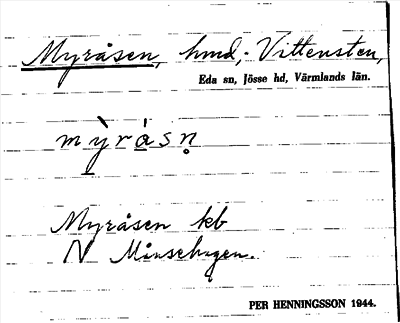 Myråsen, hmd, Vittensten,
Eda sn, Jösse hd, Värmlands län.
mỳråsn̥
Myråsen kb
N
PER HENNINGSSON 1944.